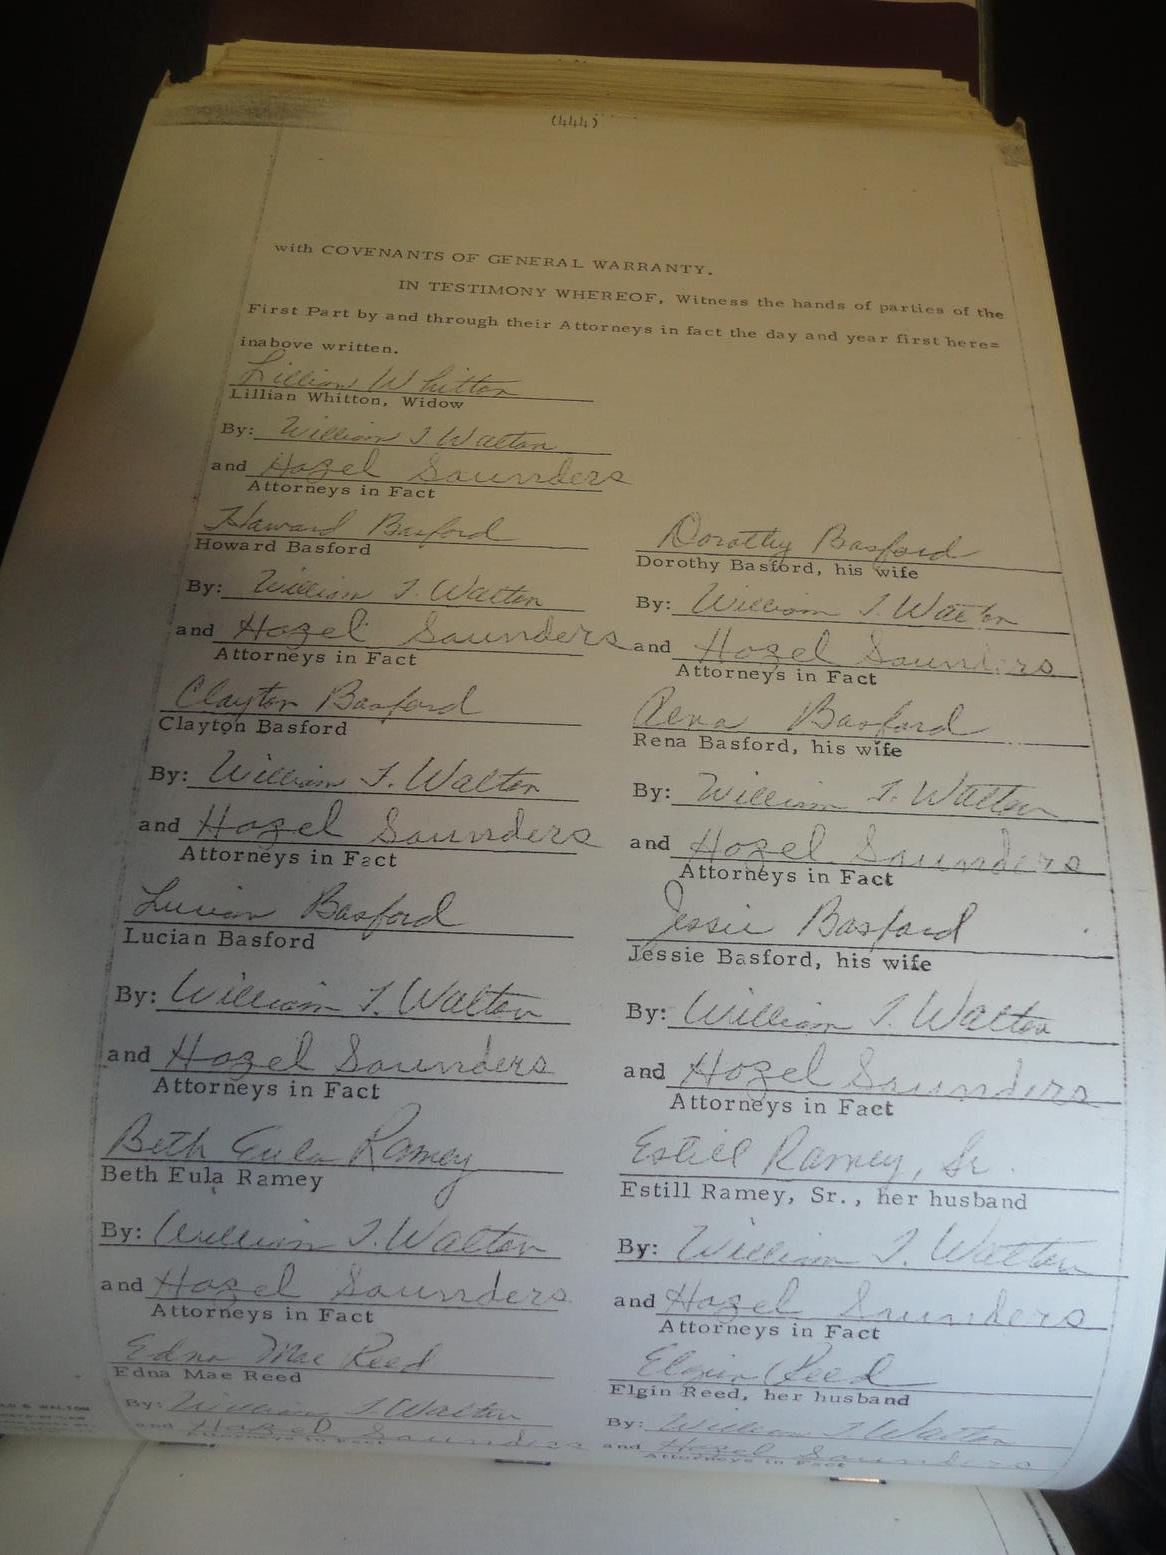 (444)
with COVENANTS OF GENERAL WARRANTY.
IN TESTIMONY WHEREOF, Witness the hands of parties of the
First Part by and through their Attorneys in fact the day and year first here=
inabove written.
Lillian Whitton
Lillian Whitton, Widow
By: William T Walton
and Hazel Saunders
Attorneys in Fact
Howard Basford Dorothy Basford
Howard Basford Dorothy Basford, his wife
By: William T. Walton By: William T. Walton
and Hazel Saunders and Hazel Saunders
Attorneys in Fact Attorneys in Fact
Clayton Basford Rena Basford
Clayton Basford Rena Basford, his wife
By: William T. Walton By: William T. Walton
and Hazel Saunders and Hazel Saunders
Attorneys in Fact Attorneys in Fact
Lucian Basford Jessie Basford
Lucian Basford Jessie Basford, his wife
By: William T. Walton By: William T. Walton
and Hazel Saunders and Hazel Saunders
Attorneys in Fact Attorneys in Fact
Beth Eula Ramey Estill Ramey, Sr.
Beth Eula Ramey Estill Ramey, Sr., her husband
By: William T. Walton By: William T. Walton
and Hazel Saunders and Hazel Saunders
Attorneys in Fact Attorneys in Fact
Edna Mae Reed Elgin Reed
Edna Mae Reed Elgin Reed, her husband
By: William T Walton By: William T Walton
and Hazel Saunders and Hazel Saunders
Attorneys in Fact Attorneys in Fact